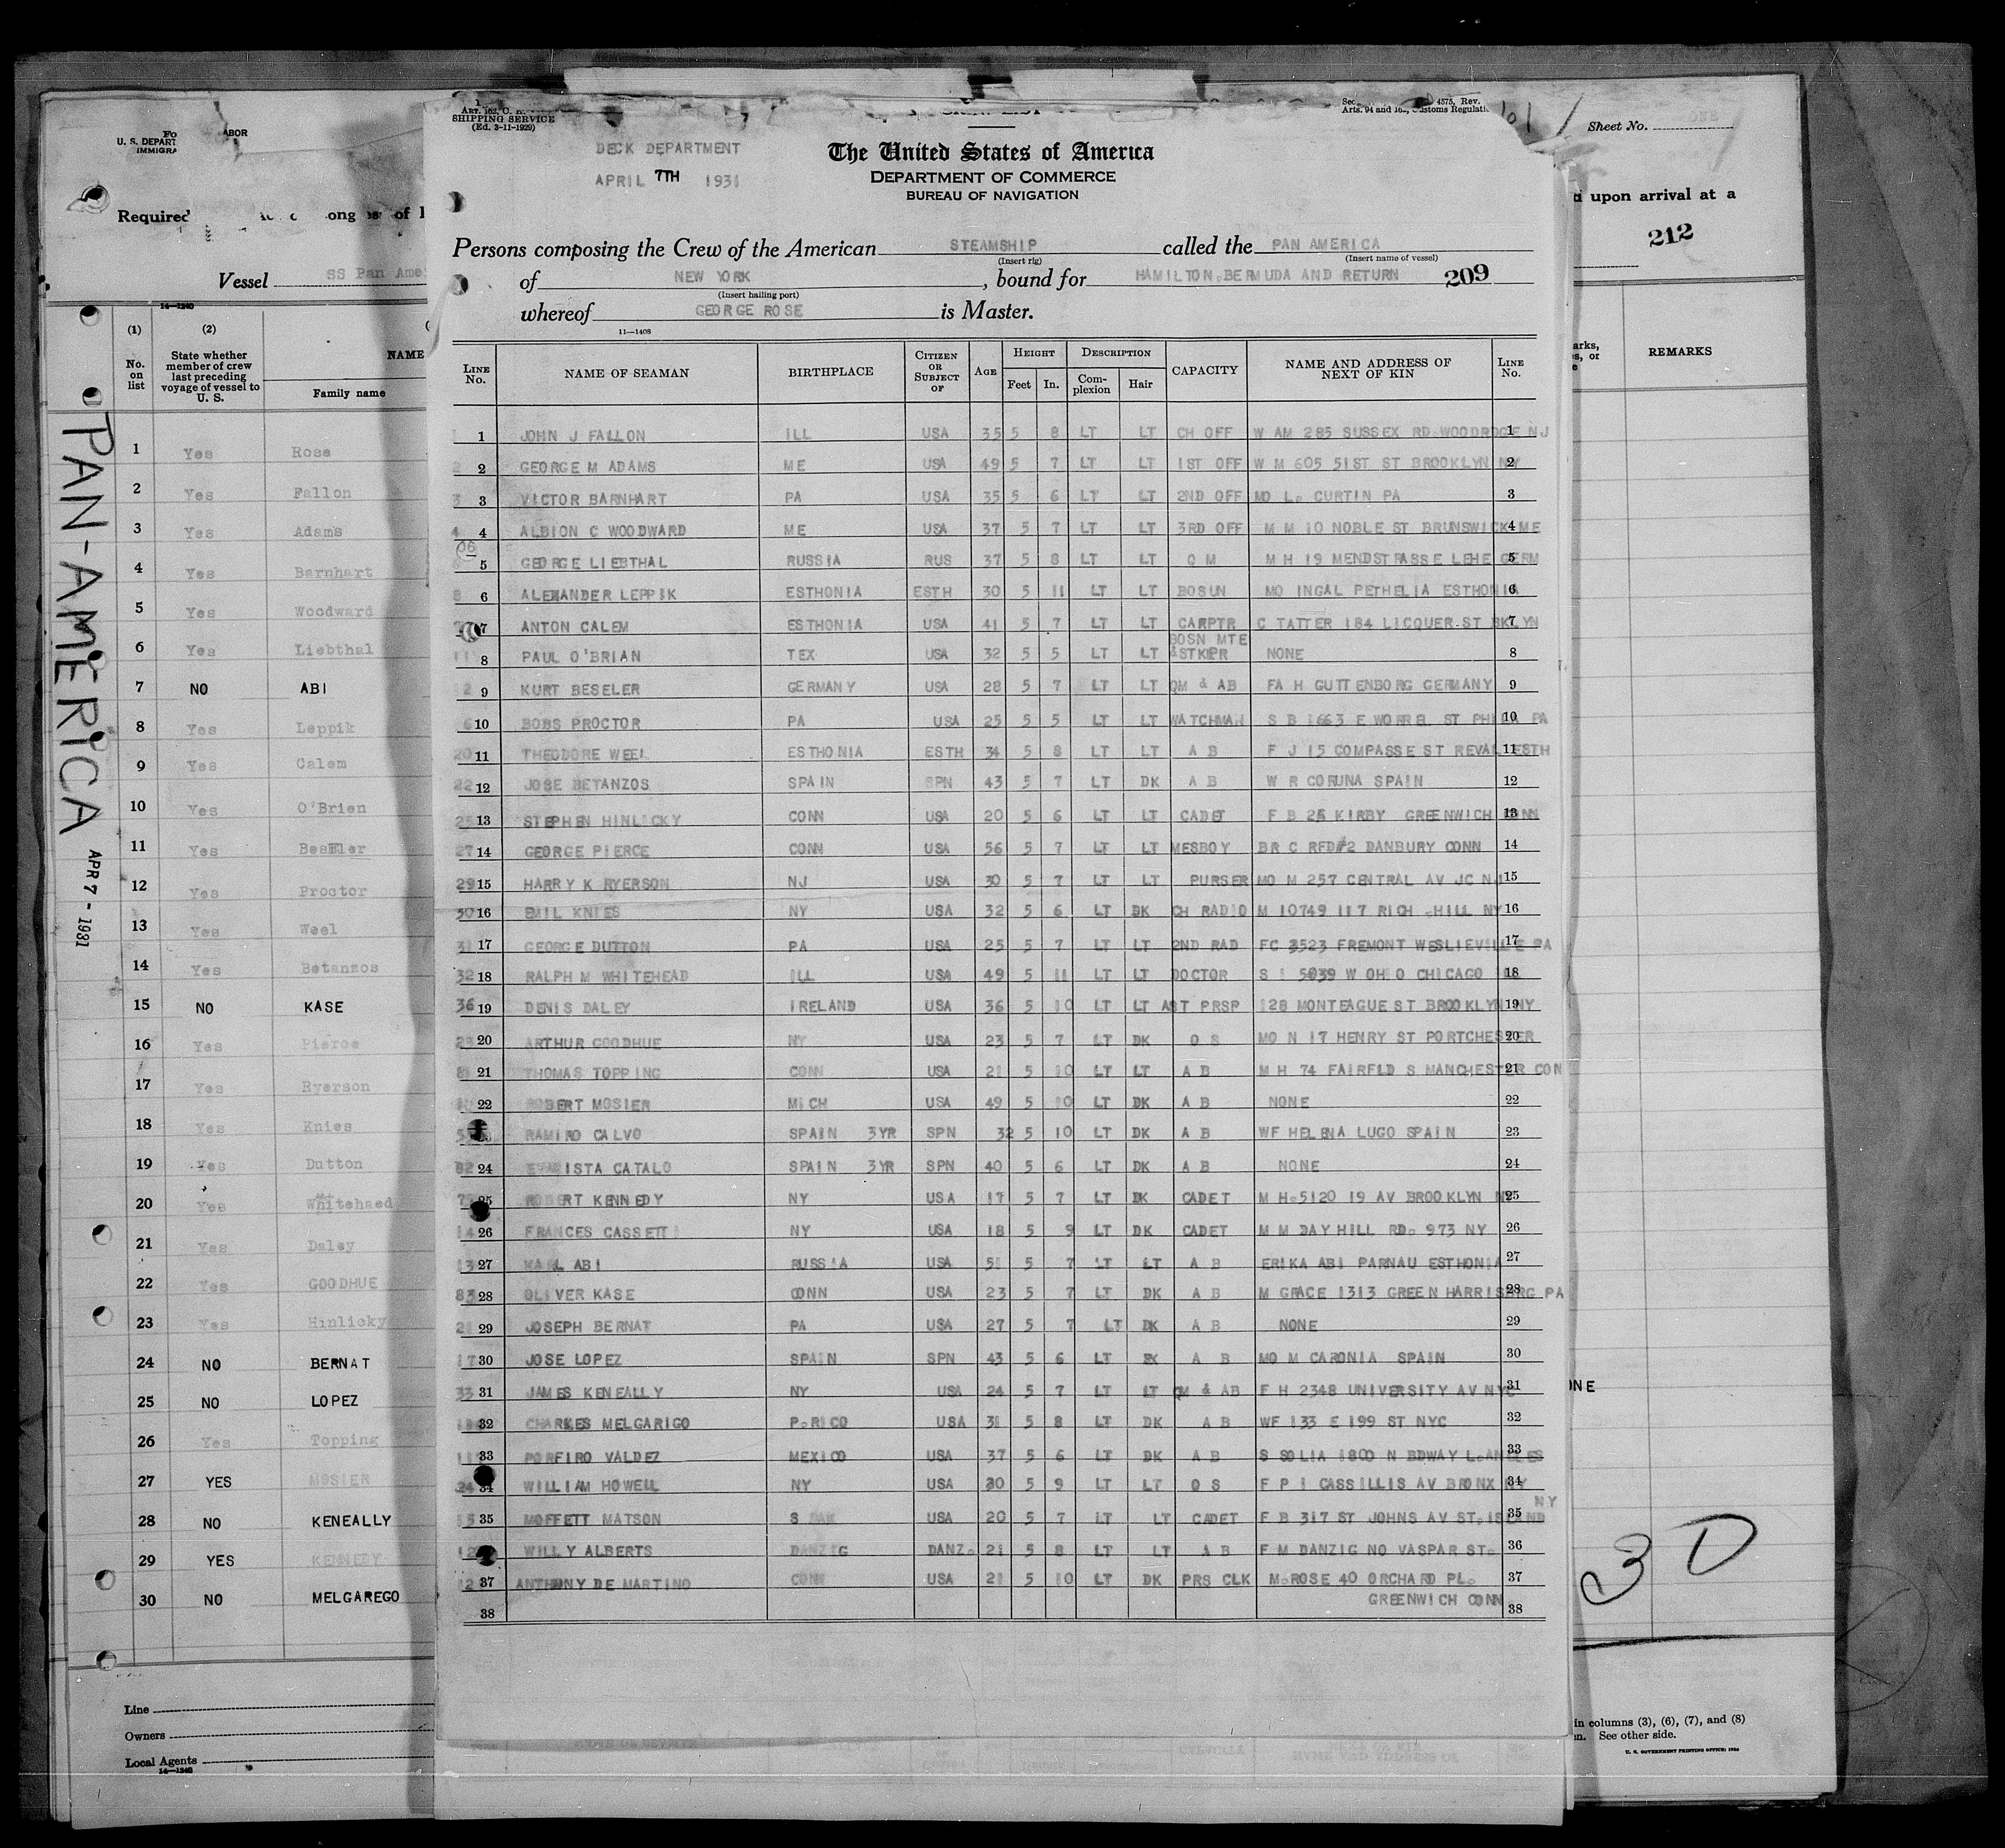 U. S. DEPART
ABOR
IMMIGRA
Required
ong
of
Vessel SS Pan Ame
14—1240
(1)
(2)
No. on list
State whether member of crew last preceding voyage of vessel to U. S.
NAME
Family name
1 Yes Rose
2 Yes Fallon
3 Yes Adams
4 Yes Barnhart
5 Yes Woodward
6 Yes Liebthal
7 NO ABI
8 Yes Leppik
9 Yes Calem
10 Yes O'Brien
11 Yes
12 Yes Proctor
13 Yes Weel
14 Yes Betanzos
15 NO KASE
16 Yes Pierce
17 Yes Ryerson
18 Yes Knies
19 Yes Dutton
20 Yes Whitehaed
21 Yes Daley
22 Yes GOODHUE
23 Yes Hinlicky
24 NO BERNAT
25 NO LOPEZ
26 Yes Topping
27 YES MOSIER
28 NO KENEALLY
29 YES KENNEDY
30 NO MELGAREGO
Line
Owners
Local Agents
14—1240
PAN-AMERICA APR 7 - 1931
SHIPPING SERVICE
(Ed. 3-11-1929)
4575, Rev.
Arts. 94 and
Customs Regulati
DECK DEPARTMENT
APRIL 7TH 1931
The United States of America
DEPARTMENT OF COMMERCE
BUREAU OF NAVIGATION
Persons composing the Crew of the American STEAMSHIP called the PAN AMERICA
(Insert rig) (Insert name of vessel)
of NEW YORK, bound for HAMILTON.BERMUDA AND RETURN 209
(Insert hailing port)
whereof GEORGE ROSE is Master.
11—1408
LINE No. NAME OF SEAMAN BIRTHPLACE CITIZEN OR SUBJECT OF AGE HEIGHT Feet In. DESCRIPTION Complexion Hair CAPACITY NAME AND ADDRESS OF NEXT OF KIN LINE No.
1 JOHN J FALLON ILL USA 35 5 8 LT LT CH OFF W AM 285 SUSSEX RD.WOODRDGE NJ 1
2 GEORGE M ADAMS ME USA 49 5 7 LT LT 1ST OFF W M 605 51ST ST BROOKLYN NY 2
3 VICTOR BARNHART PA USA 35 5 6 LT LT 2ND OFF MO L. CURTIN PA 3
4 ALBION C WOODWARD ME USA 37 5 7 LT LT 3RD OFF M M 10 NOBLE ST BRUNSWICK ME 4
5 GEORGE LIEBTHAL RUSSIA RUS 37 5 8 LT LT Q M M H 19 MENDSTRASSE LEHE GERM 5
6 ALEXANDER LEPPIK ESTHONIA ESTH 30 5 11 LT LT BOSUN MO INGAL PETHELIA ESTHONIA 6
7 ANTON CALEM ESTHONIA USA 41 5 7 LT LT CARPTR C TATTER 184 LICQUER ST BKLYN 7
8 PAUL O'BRIAN TEX USA 32 5 5 LT LT BOSN MTE &STKPR NONE 8
9 KURT BESELER GERMANY USA 28 5 7 LT LT QM & AB FA H GUTTENBORG GERMANY 9
10 BOBS PROCTOR PA USA 25 5 5 LT LT WATCHMAN S B 1663 E WORREL ST PHILA PA 10
11 THEODORE WEEL ESTHONIA ESTH 34 5 8 LT LT A B F J 15 COMPASSE ST REVAL ESTH 11
12 JOSE BETANZOS SPAIN SPN 43 5 7 LT DK A B W R CORUNA SPAIN 12
13 STEPHEN HINLICKY CONN USA 20 5 6 LT LT CADET F B 25 KIRBY GREENWICH CONN 13
14 GEORGE PIERCE CONN USA 56 5 7 LT LT MESBOY BR C RFD#2 DANBURY CONN 14
15 HARRY K RYERSON NJ USA 30 5 7 LT LT PURSER MO M 257 CENTRAL AV JC NJ 15
16 EMIL KNIES NY USA 32 5 6 LT DK CH RADIO M 10749 117 RICH .HILL NY 16
17 GEORGE DUTTON PA USA 25 5 7 LT LT 2ND RAD FC 3523 FREMONT WESLIEVILLE PA 17
18 RALPH M WHITEHEAD ILL USA 49 5 11 LT LT DOCTOR S I 5039 W OHIO CHICAGO 18
19 DENIS DALEY IRELAND USA 36 5 10 LT LT AST PRSR 128 MONTEAGUE ST BROOKLYN NY 19
20 ARTHUR GOODHUE NY USA 23 5 7 LT DK O S MO N 17 HENRY ST PORTCHESTER 20
21 THOMAS TOPPING CONN USA 21 5 10 LT LT A B M H 74 FAIRFLD S MANCHESTER CON 21
22 ROBERT MOSIER MICH USA 49 5 10 LT DK A B NONE 22
RAMIRO CALVO SPAIN 3YR SPN 32 5 10 LT DK A B WF HELENA LUGO SPAIN 23
24 ISTA CATALO SPAIN 3YR SPN 40 5 6 LT DK A B NONE 24
25 ROBERT KENNEDY NY USA 17 5 7 LT DK CADET M H.5120 19 AV BROOKLYN NY 25
26 FRANCES CASSETTI NY USA 18 5 9 LT DK CADET M M DAY HILL RD. 973 NY 26
27 KARL ABI RUSSIA USA 51 5 7 LT LT A B ERIKA ABI PARNAU ESTHONIA 27
28 OLIVER KASE CONN USA 23 5 7 LT DK A B M GRACE 1313 GREEN HARRISBRG PA 28
29 JOSEPH BERNAT PA USA 27 5 7 LT DK A B NONE 29
30 JOSE LOPEZ SPAIN SPN 43 5 6 LT DK A B MO M CARONIA SPAIN 30
31 JAMES KENEALLY NY USA 24 5 7 LT LT QM & AB F H 2348 UNIVERSITY AV NYC 31
32 CHARLES MELGARIGO P.RICO USA 31 5 8 LT DK A B WF 133 E 199 ST NYC 32
33 PORFIRO VALDEZ MEXICO USA 37 5 6 LT DK A B S SOLIA 1800 N BDWAY L.ANGLES 33
34 WILLIAM HOWELL NY USA 30 5 9 LT LT O S F P I CASSILLIS AV BRONX NY 34
35 MOFFETT MATSON S DAK USA 20 5 7 LT LT CADET F B 317 ST JOHNS AV ST.ISLAND NY 35
WILLY ALBERTS DANZIG DANZ. 21 5 8 LT LT A B F M DANZIG NO VASPAR ST. 36
37 ANTHONY DE MARTINO CONN USA 21 5 10 LT DK PRS CLK M.ROSE 40 ORCHARD PL. 37
38 GREENWICH CONN 38
Sheet No. ONE
d upon arrival at a
212
REMARKS
ONE
3 D
in columns (3), (6), (7), and (8)
n. See other side.
U. S. GOVERNMENT PRINTING OFFICE: 1930